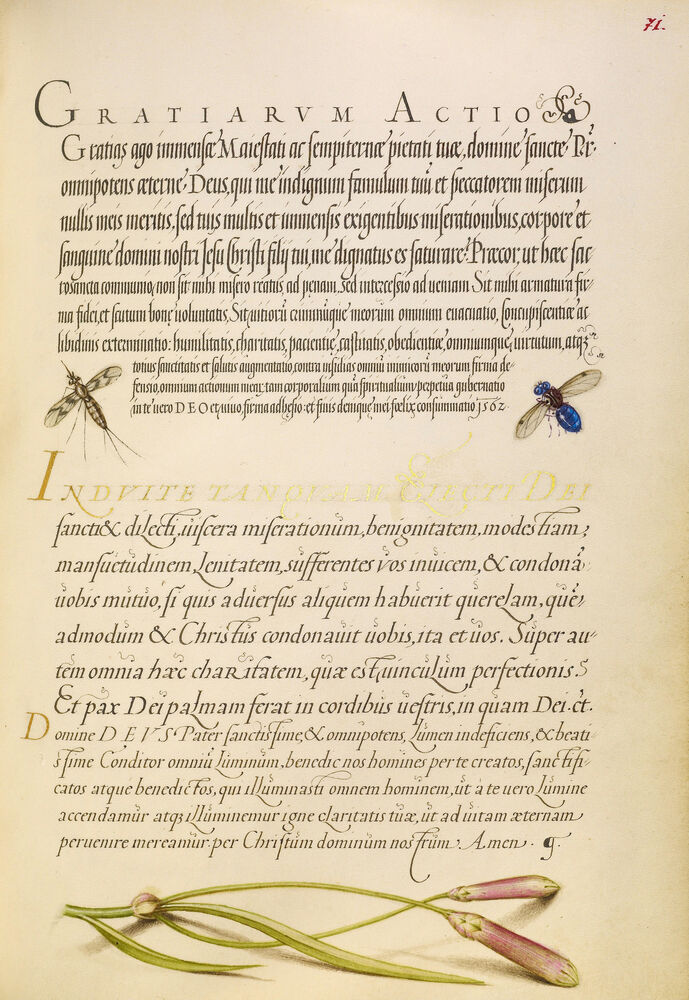 71.
GRATIARVM ACTIO
Gratias ago immensæ Maiestati ac sempiternæ pietati tuæ, domine sancte Pr̃
omnipotens æterne Deus, qui me indignum famulum tuũ et peccatorem miserum
nullis meis meritis, sed tuis multis et immensis exigentibus miserationibus, corpore et
sanguine domini nostri Jesu Christi filij tui, me dignatus es saturare. Præcor, ut hæc sac
rosancta communio, non sit mihi misero reatus ad penam, sed intercessio ad veniam. Sit mihi armatura fir-
ma fidei, et scutum bonę voluntatis, Sit uitiorũ criminũque meorum omnium euacuatio, Concupiscentiæ ac
libidinis exterminatio: humilitatis, charitatis, pacientię, castitatis, obedientiæ, omniumque, uirtutum, atq3
totius sanctitatis et salutis augmentatio, contra insidias omniũ inimicorũ meorum firma de-
fensio, omnium actionum mearũ tam corporalium quã spiritualium perpetua gubernatio
in te uero DEO et uiuo, firma adhesio: et finis denique mei fœlix consummatio 1562.
INDVITE TANQVAM ELECTI DEI
sancti & dilecti, uiscera miserationum, benignitatem, modestiam,
mansuetudinem, Lenitatem, sufferentes vos inuicem, & condonã-
uobis mutuo, si quis aduersus aliquem habuerit querelam, quẽ-
admodum & Christus condonauit uobis, ita et uos. Super au-
tem omnia hæc charitatem, quæ est uinculum perfectionis.
Et pax Dei palmam ferat in cordibus uestris, in quam Dei. ct.
Domine DEVS Pater sanctissime, & omnipotens, Lumen indeficiens, & beati-
ssime Conditor omniũ Luminum, benedic nos homines per te creatos, sanctifi-
catos atque benedictos, qui illuminasti omnem hominem, ut à te uero Lumine
accendamur atq3 illuminemur igne claritatis tuæ, ut ad uitam æternam
peruenire mereamur. per Christum dominum nostrum. Amen. g.